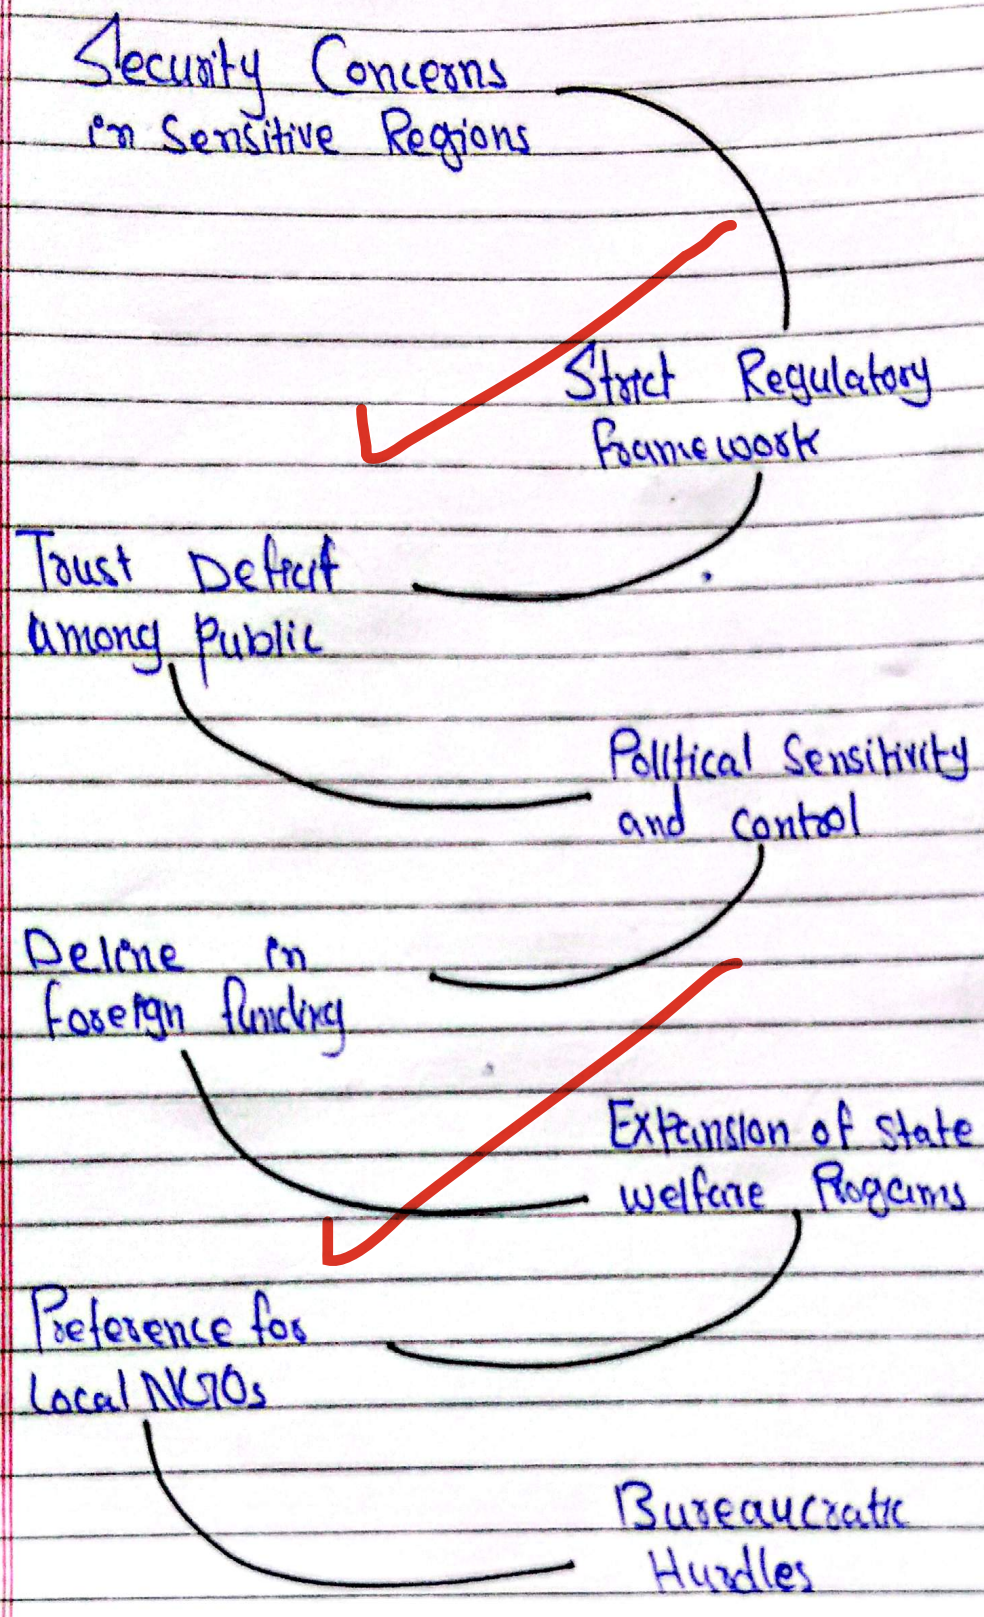 Security Concerns
in Sensitive Regions
Strict Regulatory
framework
Trust Deficit
among public
Political Sensitivity
and control
Decline in
foreign funding
Expansion of state
welfare Progams
Preference for
Local NGOs
Bureaucratic
Hurdles